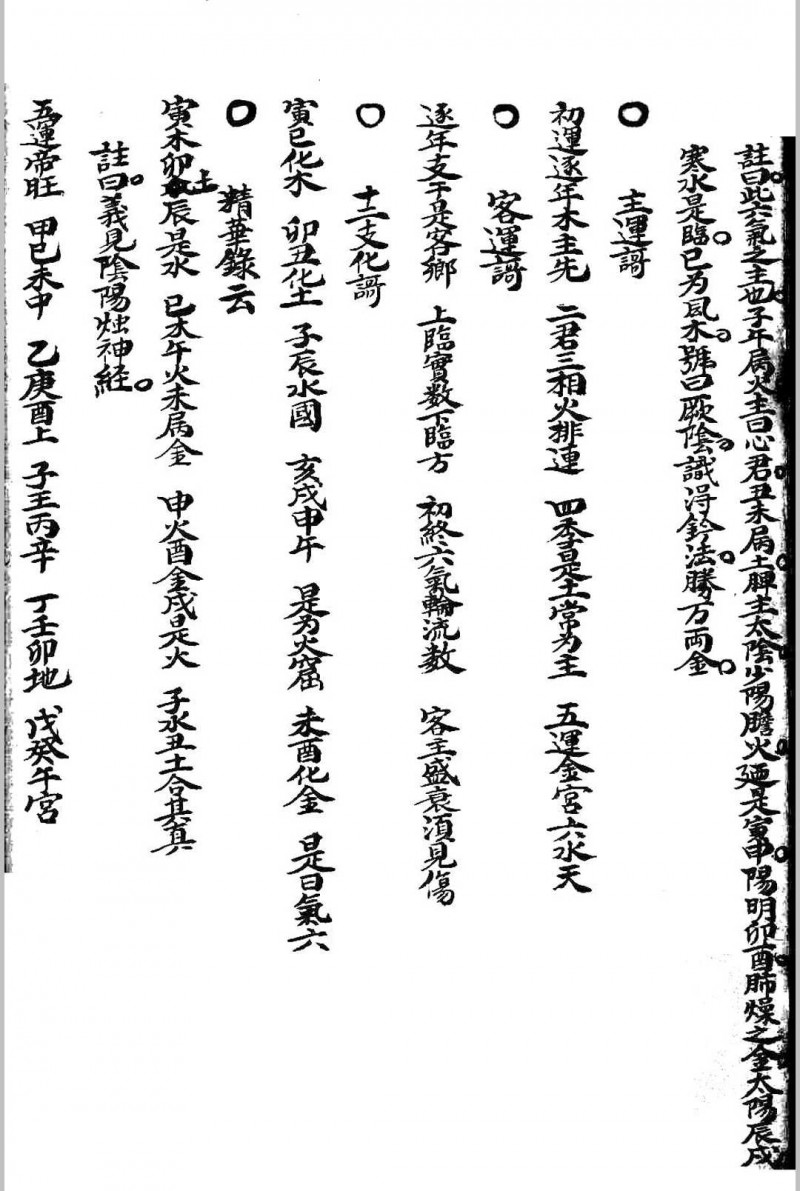 註曰此六氣之主也子午屬火主曰心君丑未屬土脾主太陰少陽膽火廼是寅申陽明卯酉肺燥之金太陽辰戌
寒水是臨巳为風木號曰厥陰識得鈐法勝万両金
○ 主運謌
初運逐年木主先 二君三相火排連 四季是土常为主 五運金宮六水天
○ 客運謌
逐年支干是客鄉 上臨實数下臨方 初終六氣輪流数 客主盛衰須見傷
○ 十二支化謌
寅巳化木 卯丑化土 子辰水國 亥戌申午 是为火窟 未酉化金 是曰氣六
○ 精華錄云
寅木卯土辰是水 巳木午火未属金 申火酉金戌是火 子水丑土合其真
註曰義見陰陽烛神経
五運帝旺 甲巳未中 乙庚酉上 子王丙辛 丁壬卯地 戊癸午宮